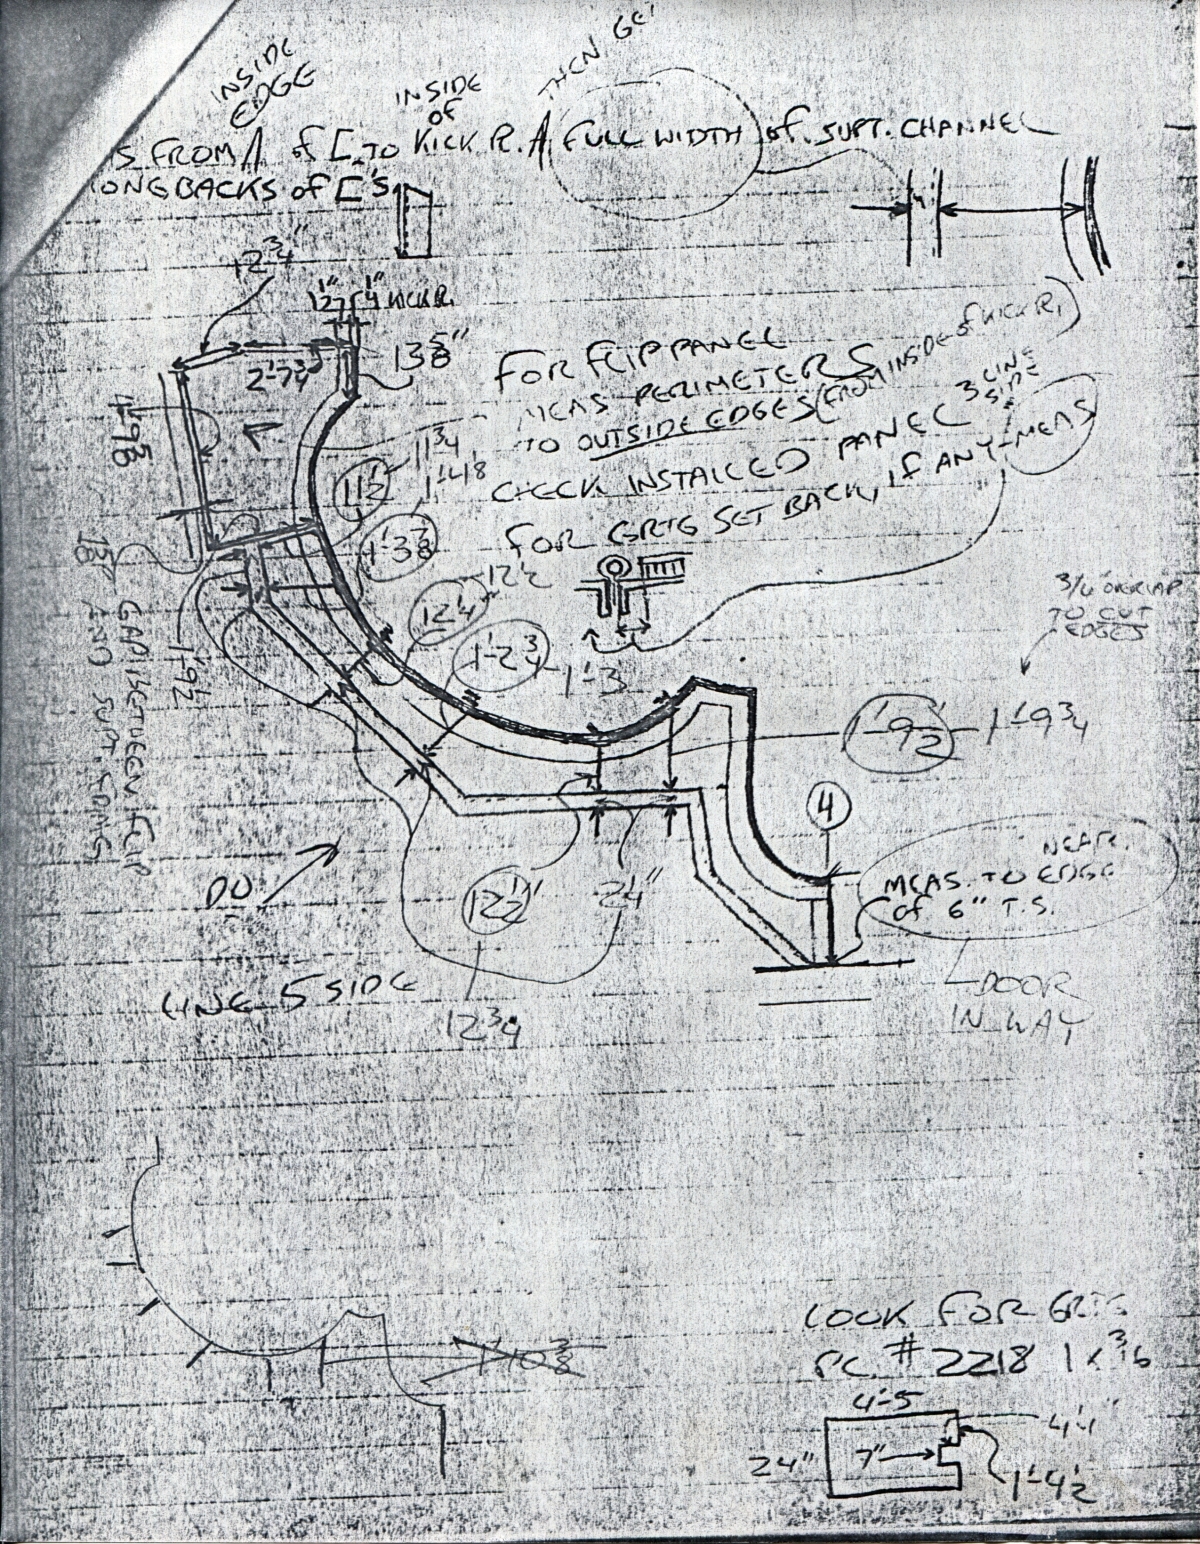 INSIDE
EDGE
INSIDE
OF
THEN GET
S FROM A of [ TO KICK PL. A FULL WIDTH of SUPT. CHANNEL
ONG BACKS of ['S
12 3/4"
1/2" 1/4" KICK PL.
13 5/8"
2'-7 3/4
4'-9 5/8
FOR FLIP PANEL
MEAS PERIMETERS
TO OUTSIDE EDGES (FROM INSIDE of KICK PL)
CHECK INSTALLED PANEL 3 LINE
SIDE
FOR GRTG SET BACK, IF ANY-MEAS
11 3/4
11 1/2
1'-4 1/8
1'-3 7/8
12 1/2
12 1/4
1'-2 3/4 - 1'-3
1'-9 1/2
GAP BETWEEN FLIP
AND SUPT.
3/16 OVERLAP
TO CUT
EDGES
1'-9 1/2 - 1'-9 3/4
4
NEAR
MEAS. TO EDGE
of 6" T.S.
DOOR
IN WAY
DO
12 1/2"
2 1/4"
LINE 5 SIDE
12 3/4
1'-10 3/8
LOOK FOR GRTG
PC. # 2218 1 x 3/16
4'-5
4 1/4"
24"
7"
1'-4 1/2